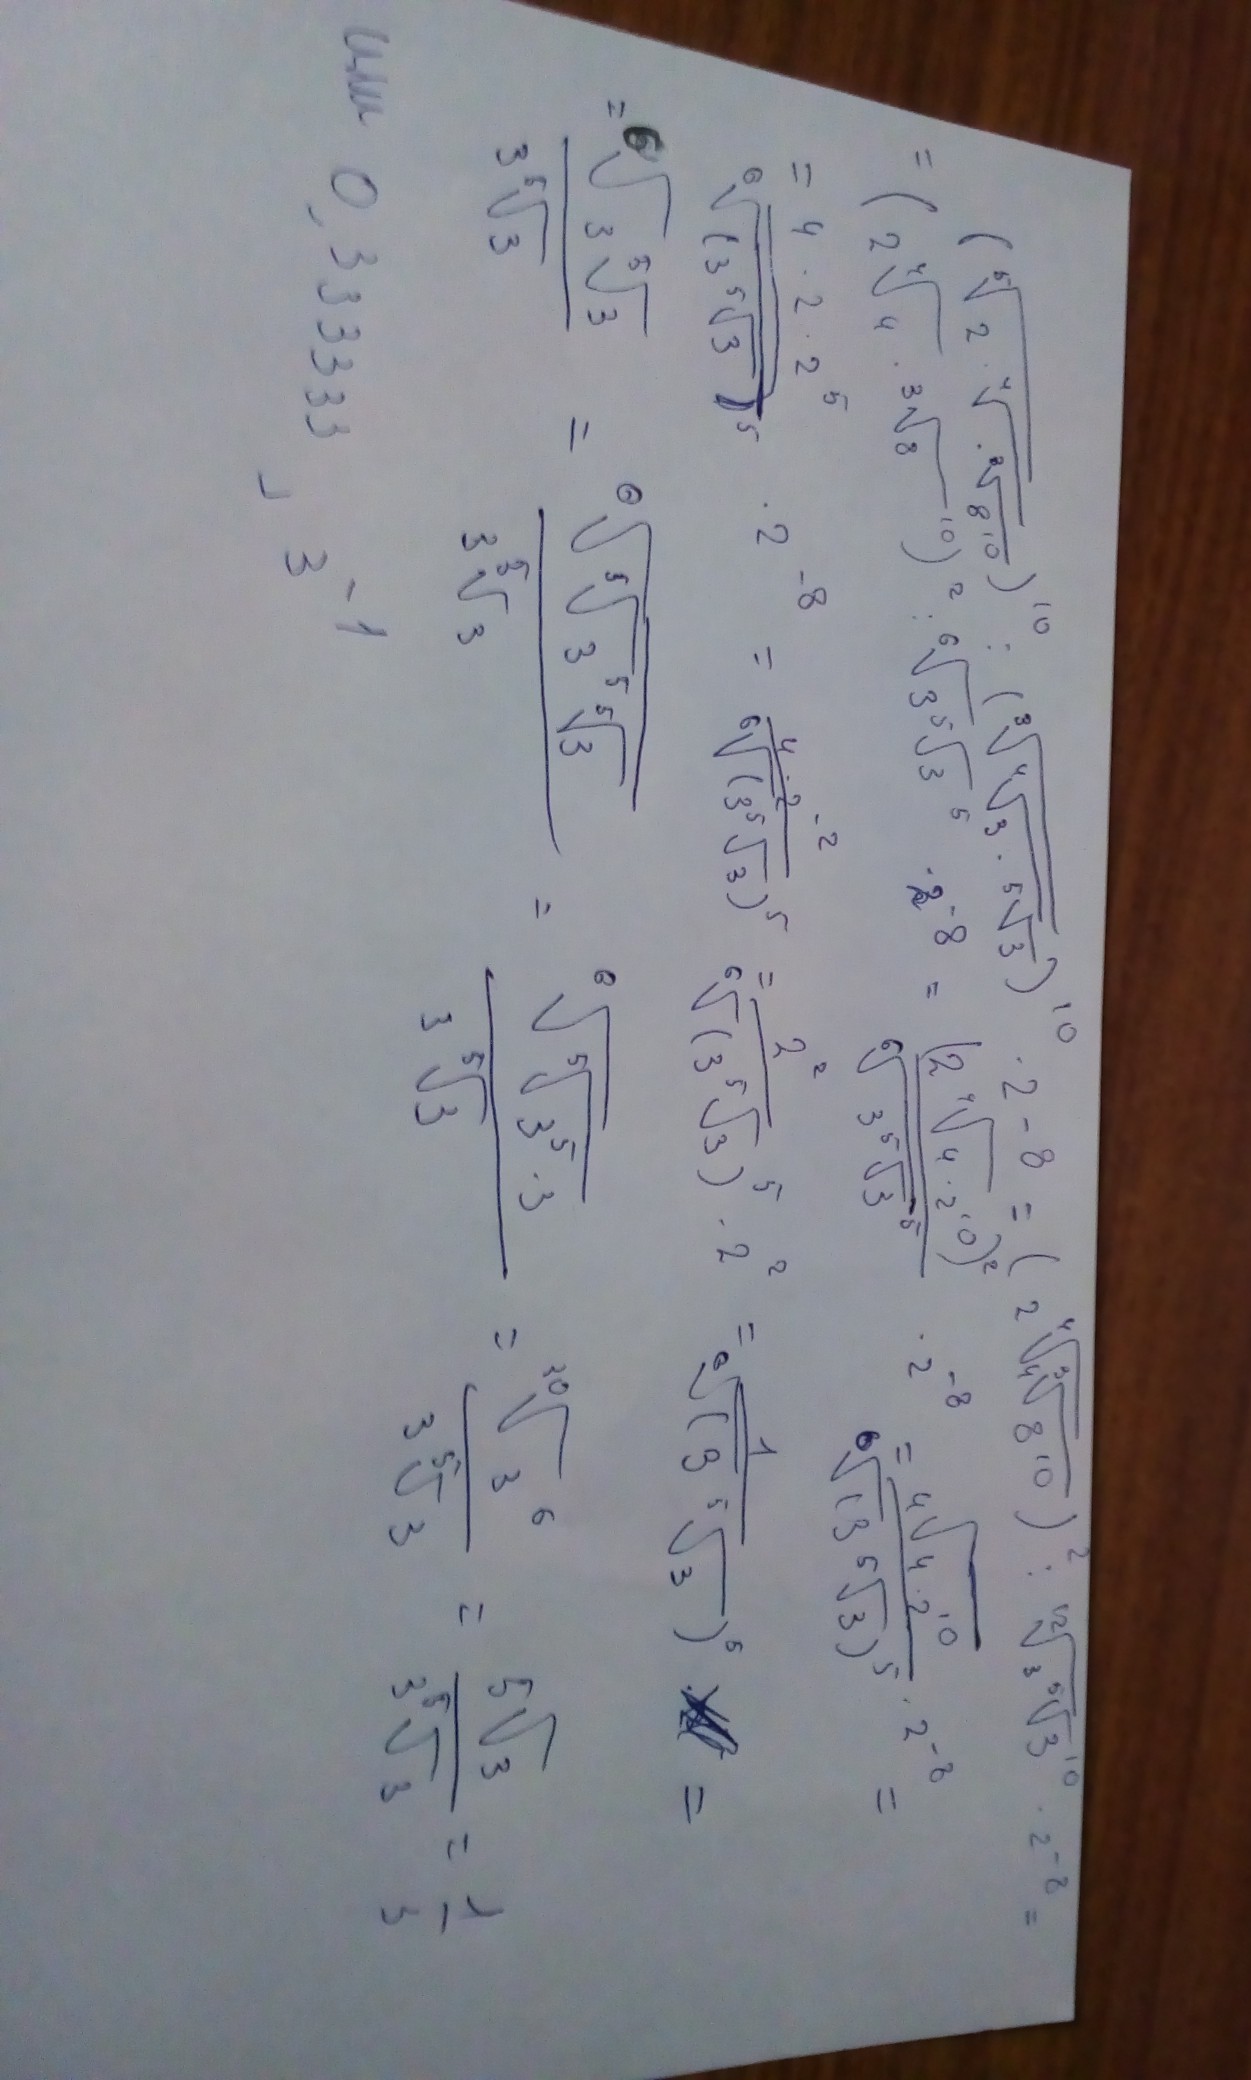 (⁵√(2·⁴√(·³√(8¹⁰))))¹⁰ : (³√(⁴√(3·⁵√3)))¹⁰ · 2-8 = (2 ⁴√(4 ³√(8¹⁰)))² : ¹²√(3 ⁵√3)¹⁰ · 2⁻⁸ =
= (2 ⁴√4 · ³√8¹⁰)² : ⁶√(3 ⁵√3)⁵ · 2⁻⁸ = (2 ⁴√4·2¹⁰)² / ⁶√(3 ⁵√3⁵) · 2⁻⁸ = 4√(4·2¹⁰) / ⁶√((3 ⁵√3)⁵) · 2⁻⁸ =
= 4·2·2⁵ / ⁶√((3 ⁵√3)⁵) · 2⁻⁸ = 4·2⁻² / ⁶√((3 ⁵√3)⁵) = 2² / ⁶√((3 ⁵√3)⁵) · 2² = 1 / ⁶√((3 ⁵√3)⁵) =
= ⁶√(3 ⁵√3) / 3 ⁵√3 = ⁶√(⁵√(3⁵ ⁵√3)) / 3 ⁵√3 = ⁶√(⁵√(3⁵·3)) / 3 ⁵√3 = ³⁰√(3⁶) / 3 ⁵√3 = ⁵√3 / 3 ⁵√3 = 1/3
или 0,33333, 3⁻¹